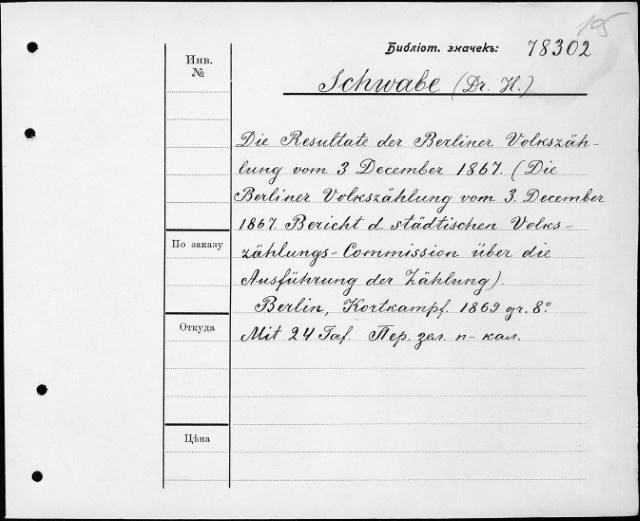 105
Библіот. значекъ: 78302
Инв.
№
Schwabe (Dr. H.)
Die Resultate der Berliner Volkszäh-
lung vom 3 December 1867. (Die
Berliner Volkszählung vom 3. December
1867. Bericht d. städtischen Volks-
По заказу
zählungs-Commission über die
Ausführung der Zählung).
Berlin, Kortkampf. 1869 gr. 8°
Откуда
Mit 24 Taf. Пер. зел. п-кал.
Цѣна